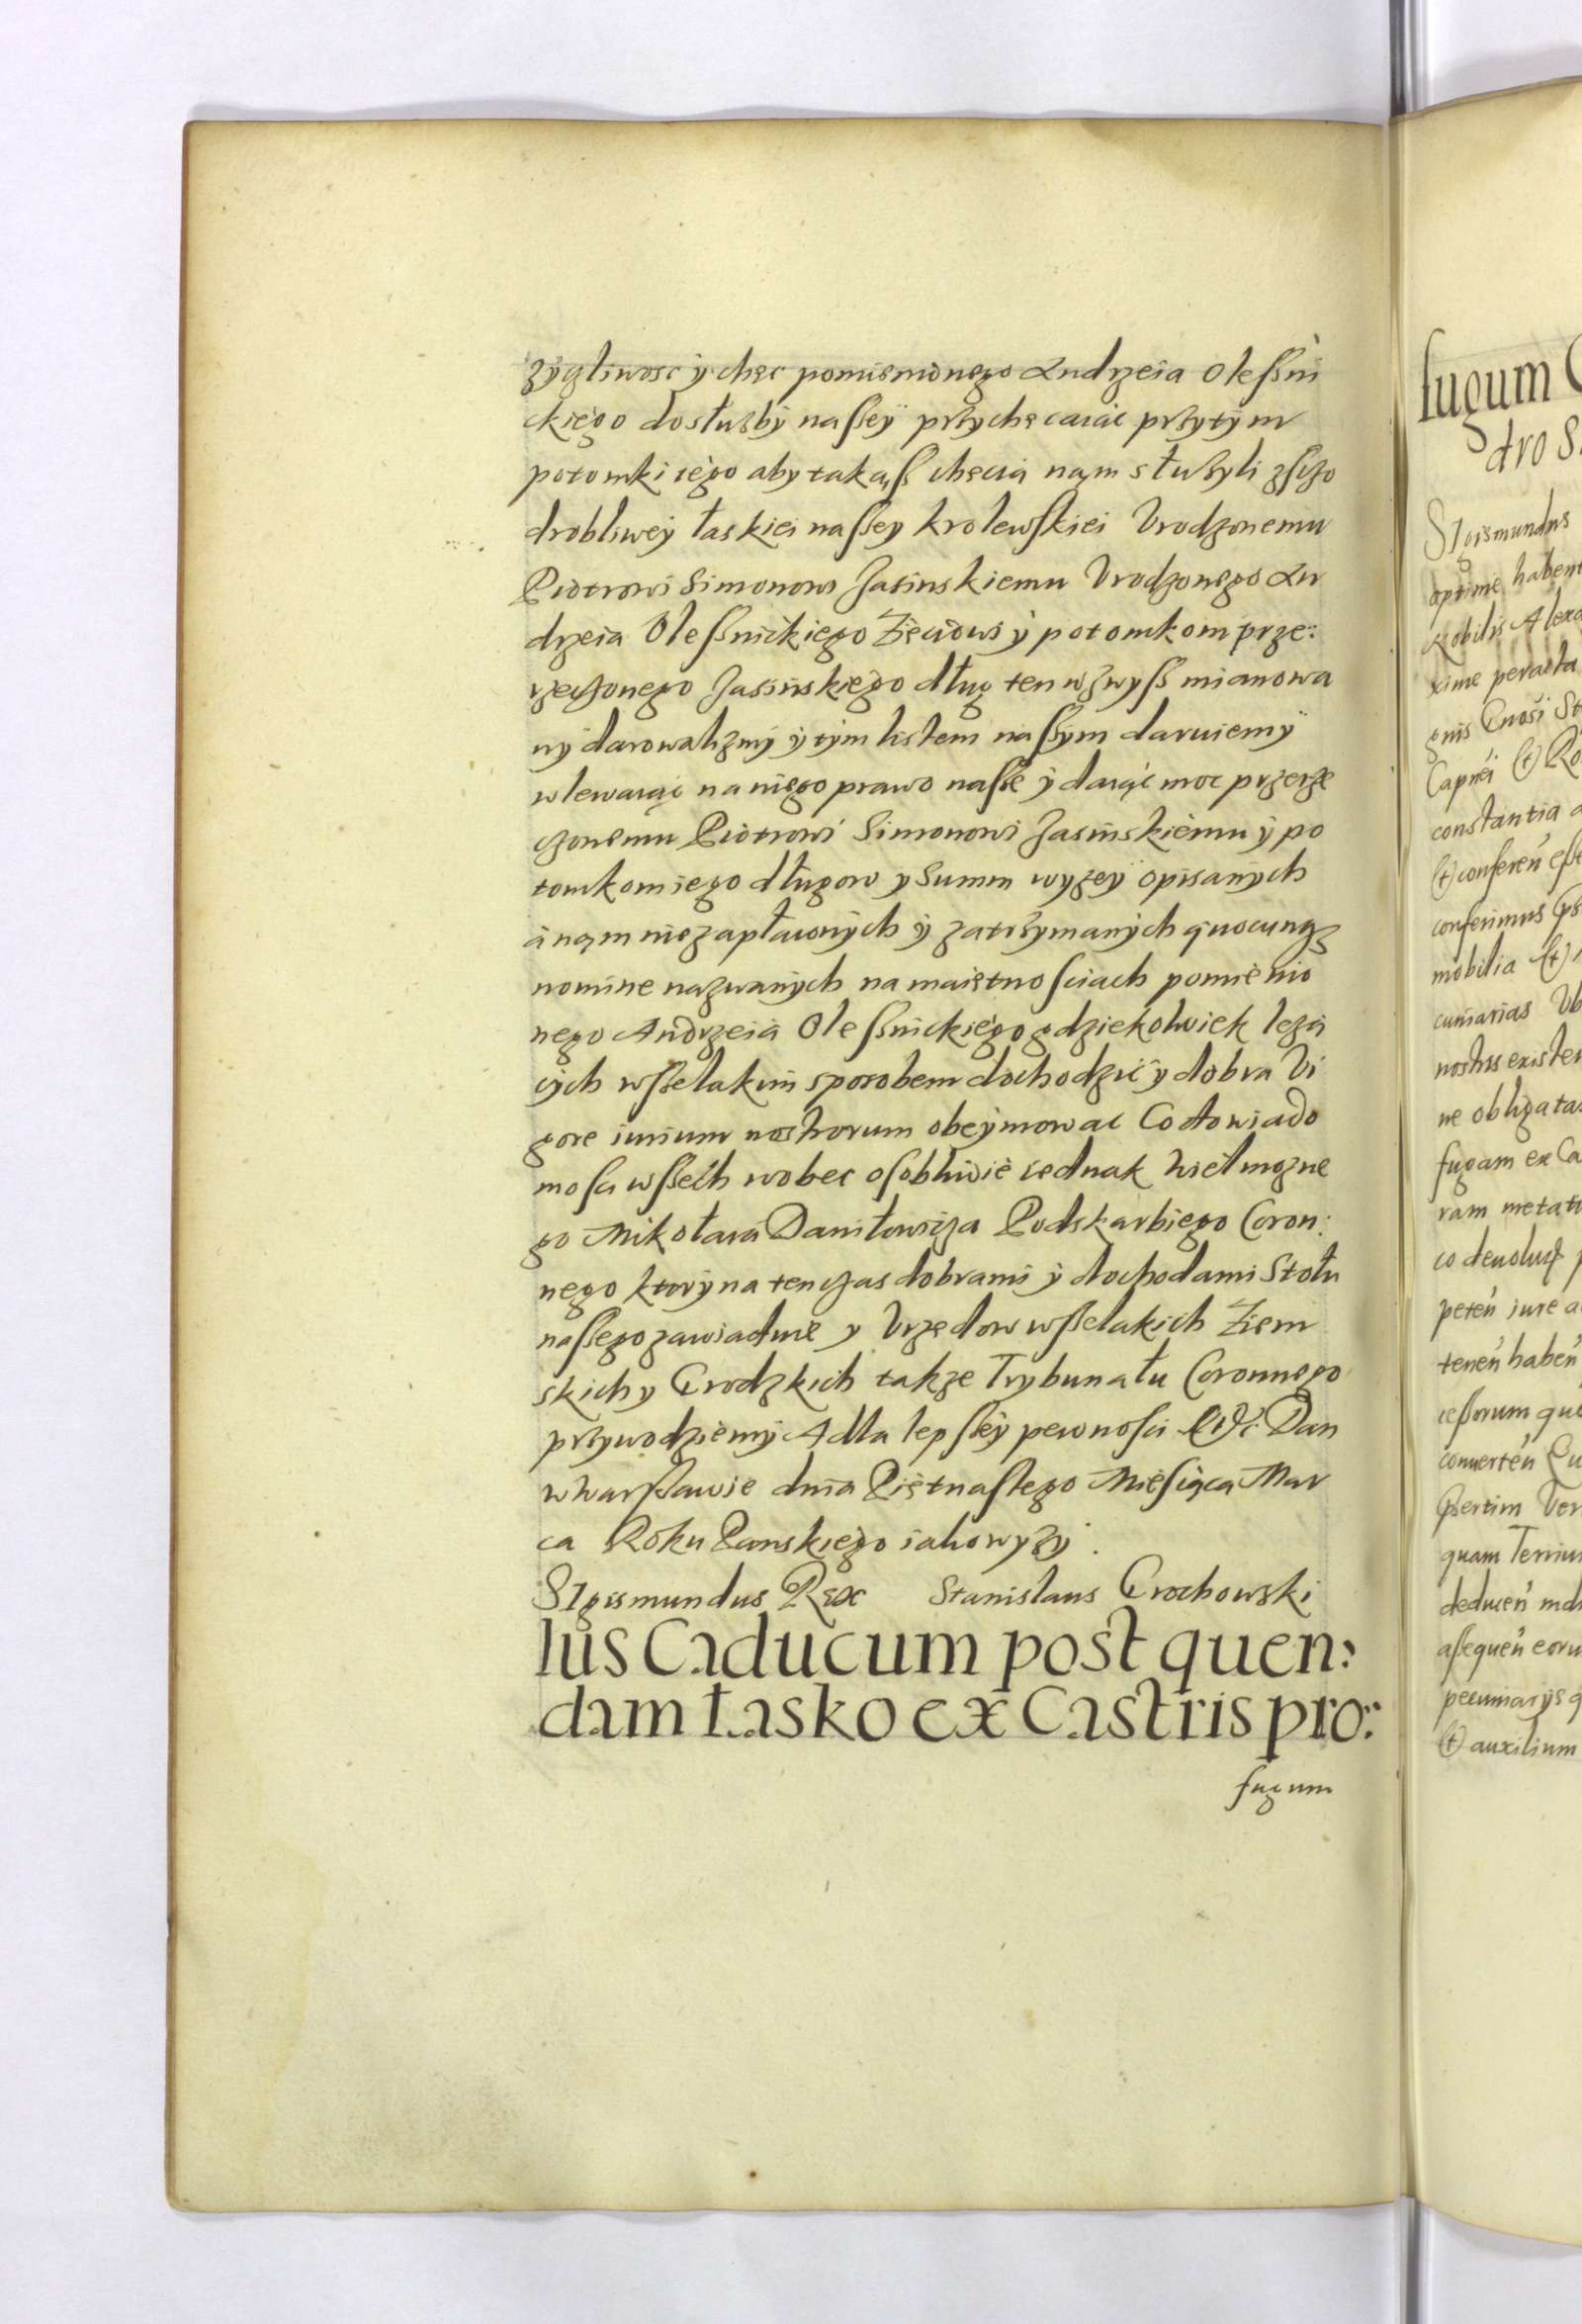 życzliwosc ÿ chęc pomienionego Andrzeia Olessni
ckiego do słuzbÿ nassey przychęcaiąc przytÿm
potomki iego aby takąss chęcią nąm słuzyli z szczo
drobliweÿ łaskiei nassey krolewskiei Vrodzonemu
Piotrowi Simonowi Jasinskiemu Vrodzonego An
drzeia Olessnickiego Zięciowi ÿ potomkom prze:
rzeczonego Jasinskiego dług ten wzwyss mianowa
nÿ darowalizmÿ ÿ tÿm listem nassÿm daruiemÿ
wlewaiąc na niego prawo nasse ÿ daiąc moc przerze
czonemu Piotrowi Simonowi Jasinskiemu ÿ po
tomkom iego długow y Summ wyzeÿ opisanÿch
a nąm niezapłaconÿch ÿ zatrzymanÿch quocunq3
nomine nazwanÿch na maiętnosciach pomienio
nego Andrzeia Olessnickiego gdziekolwiek lezą
cÿch wsselakim sposobem dochodzic ÿ dobra Vi
gore iurium nostrorum obeÿmowac Co do wiado
mosci wssech wobec osobliwie iednak Wielmozne
go Mikołaia Daniłowicza Podskarbiego Coron:
nego ktorÿ na ten czas dobrami ÿ dochodami Stołu
nassego zawiaduie y Vrzędow wsselakich Ziem
skich y Grodzkich takze Trybunału Coronnego
przywodziemÿ A dla lepsseÿ pewnosci (t) Dan
w Warssawie dnia Piętnastego Miesiąca Mar
ca Roku Panskiego iako wyzÿ.
SIgismundus Rex Stanislaus Grochowski
Ius Caducum post quen:
dam Łasko ex Castris pro:
fugum
fugum
dro
SIgismundus
optime
Nobilis
xime peracta
constantia
conferimus
mobilia (t)
ne obligatas
fugam ex
peten iure
tenen haben
quam
(t) auxilium